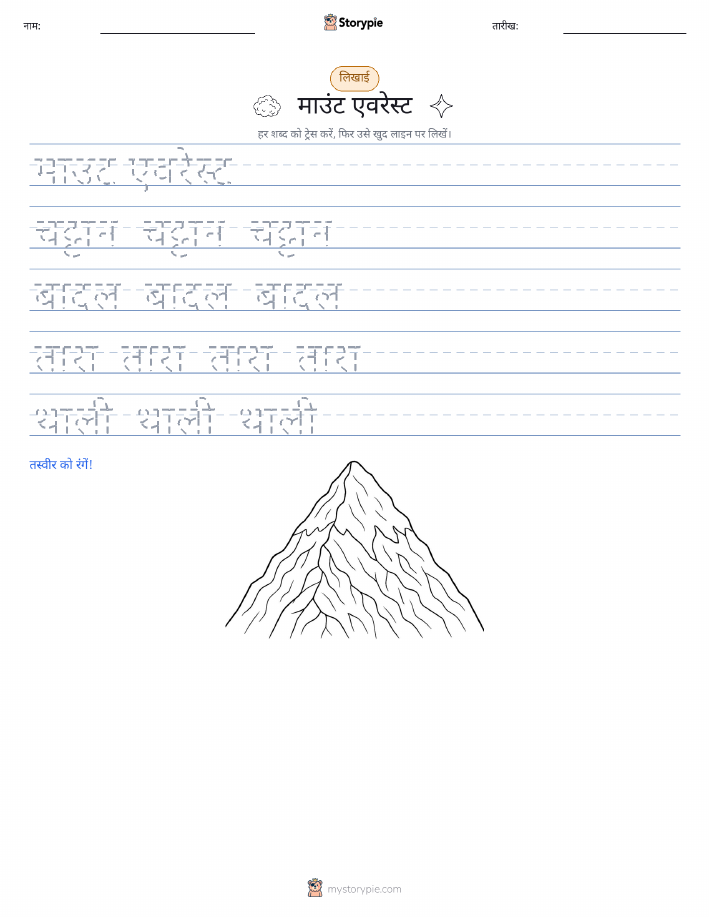 नाम:
Storypie
तारीख:
लिखाई
माउंट एवरेस्ट
हर शब्द को ट्रेस करें, फिर उसे खुद लाइन पर लिखें।
माउंट एवरेस्ट
चट्टान चट्टान चट्टान
बादल बादल बादल
तारा तारा तारा तारा
थाली थाली थाली
तस्वीर को रंगें!
mystorypie.com